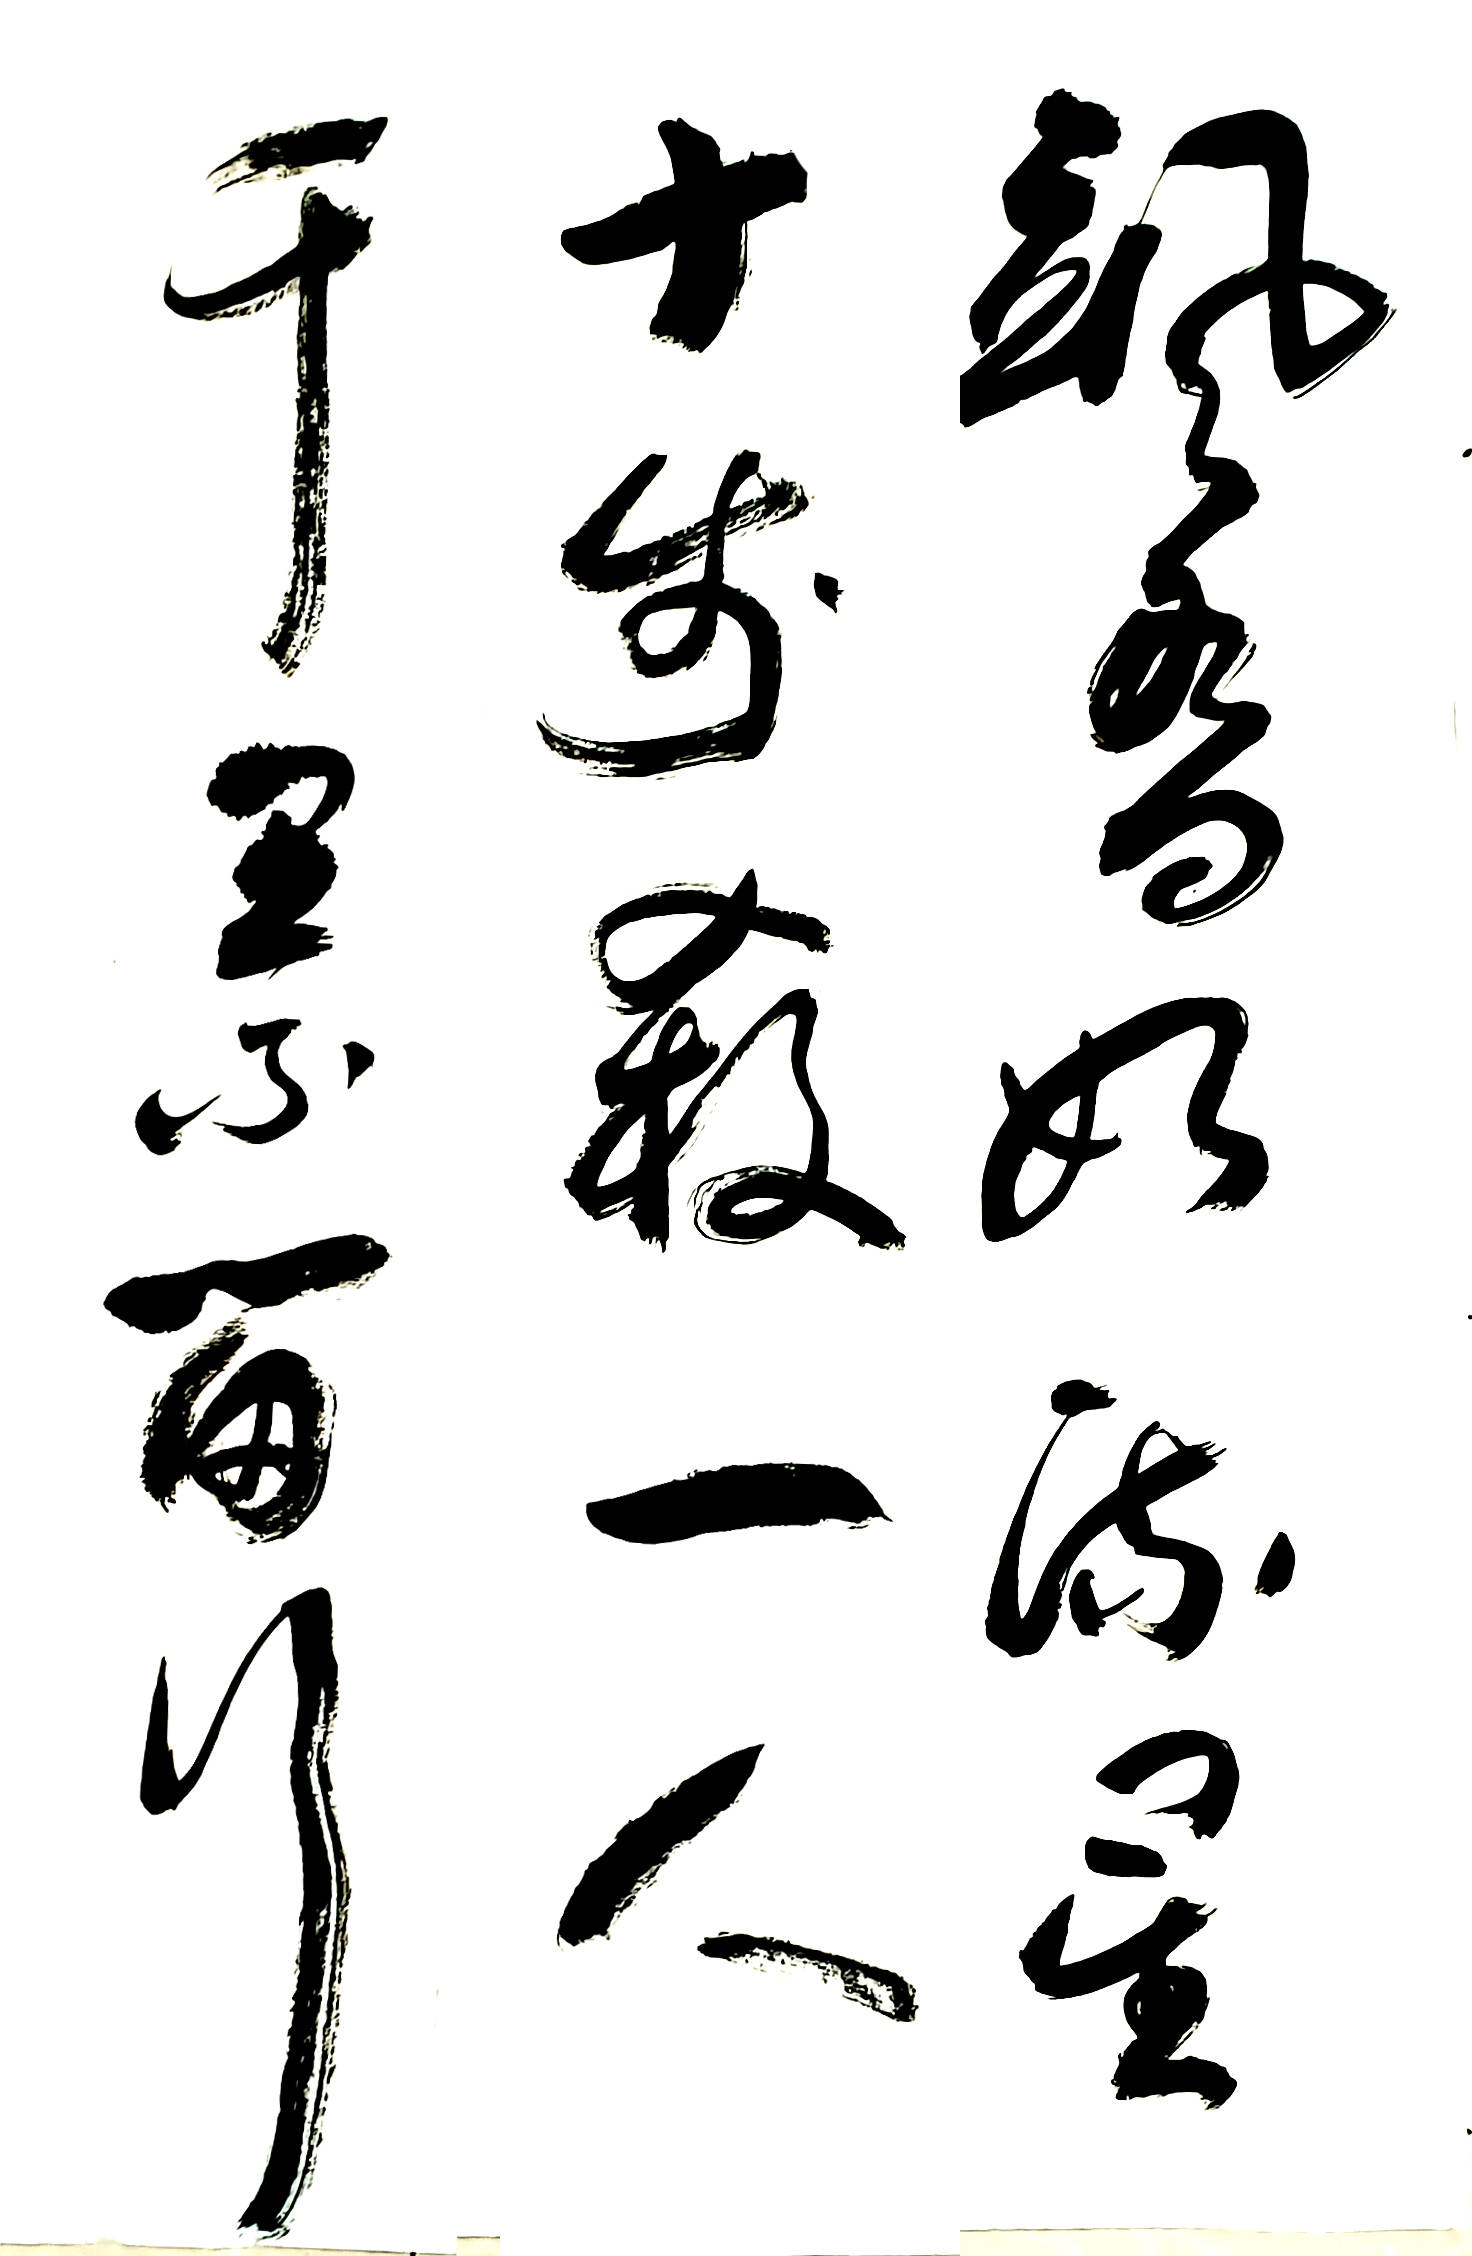 颯沓如流星
十步殺一人
千里不留行